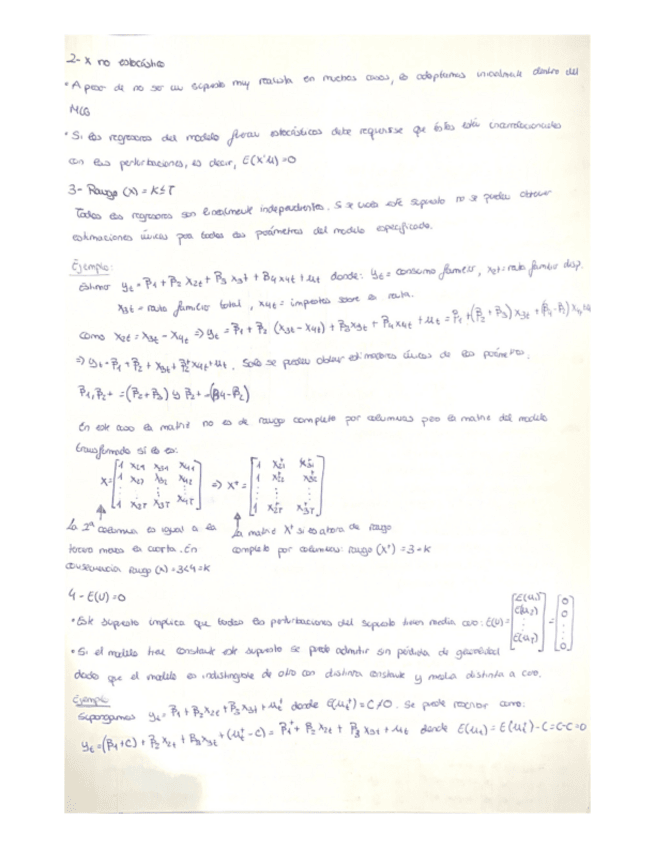 2- X no estocástico
• A pesar de no ser un supuesto muy realista en muchos casos, lo adoptamos inicialmente dentro del
MCG
• Si los regresores del modelo fueran estocásticos debe requerirse que éstos estén incorrelacionados
con las perturbaciones, es decir, E(X'U)=0
3- Rango (X) = K≤T
Todos los regresores son linealmente independientes. Si se viola este supuesto no se pueden obtener
estimaciones únicas para todos los parámetros del modelo especificado.
Ejemplo:
Estimo yt = β1 + β2 x2t + β3 x3t + β4 x4t + ut donde: yt = consumo familiar, x2t = renta familiar disp.
x3t = renta familiar total, x4t = impuestos sobre la renta.
Como x2t = x3t - x4t => yt = β1 + β2 (x3t - x4t) + β3 x3t + β4 x4t + ut = β1 + (β2 + β3) x3t + (β4 - β2) x4t
=> yt = β1 + β2 + x3t + β3+ x4t + ut. Solo se pueden obtener estimadores únicos de los parámetros:
β1, β2+ = (β2 + β3) y = (β4 - β2)
En este caso la matriz no es de rango completo por columnas pero la matriz del modelo
transformado sí lo es:
X = [1 x21 x31 x41
1 x22 x32 x42
⋮ ⋮ ⋮ ⋮
1 x2T x3T x4T] => X+ = [1 x21+ x31+
1 x22+ x32+
⋮ ⋮ ⋮
1 x2T+ x3T+]
La 2ª columna es igual a la
tercera menos la cuarta. En
consecuencia Rango (X) = 3<4=K
La matriz X+ sí es ahora de rango
completo por columnas: rango (X+) = 3 = K
4- E(U)=0
• Este supuesto implica que todas las perturbaciones del supuesto tienen media cero: E(U) = [E(u1) E(u2) ⋮ E(uT)] = [0 0 ⋮ 0]
• Si el modelo trae constante este supuesto se puede admitir sin pérdida de generalidad
dado que el modelo es indistinguible de otro con distinta constante y media distinta a cero.
Ejemplo
Supongamos yt = β1 + β2 x2t + β3 x3t + ut+ donde E(ut+) = C ≠ 0. Se puede reescribir como:
yt = (β1 + C) + β2 x2t + β3 x3t + (ut+ - C) = β1+ + β2 x2t + β3 x3t + ut donde E(ut) = E(ut+) - C = C-C = 0